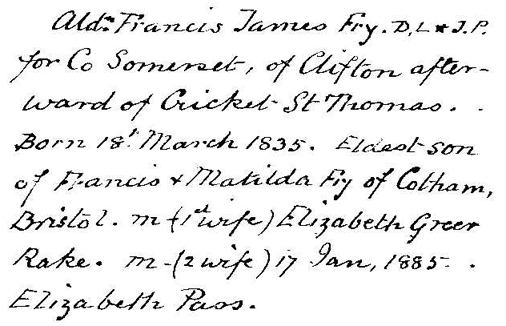 Aldn Francis James Fry. D.L & J.P.
for Co Somerset, of Clifton after-
ward of Cricket St Thomas.
Born 18t March 1835. Eldest son
of Francis & Matilda Fry of Cotham,
Bristol. m-(1st wife) Elizabeth Greer
Rake. m-(2 wife) 17 Jan, 1885.
Elizabeth Pass.